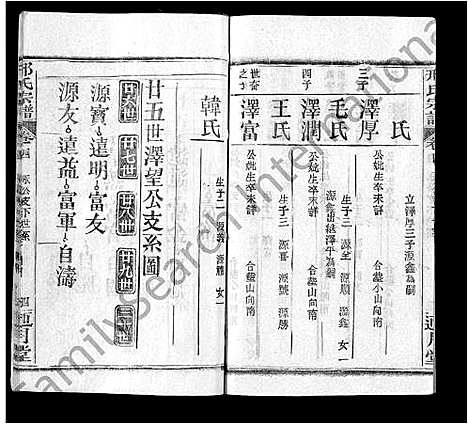 氏
立澤厚三子源鑫為嗣
三子
澤厚
公妣生卒未詳
合塟小山向南
毛氏
生子三 源全 源鑫 源勝
源鑫出繼澤平為嗣
四子
澤潤
公妣生卒未詳
合塟山向南
王氏
生子三 源喜 源號 源勝
世奋之子
澤富
公妣生卒未詳
合塟山向南
韓氏
生子二 源義 源勝 女一
廿五世澤望公支系圖
廿六世 廿七世 廿八世 廿九世 三十世
源寶 遠明 富友
源友 遠益 富軍 自濤
邢氏宗譜
卷四
四
通月堂
FamilySearch International